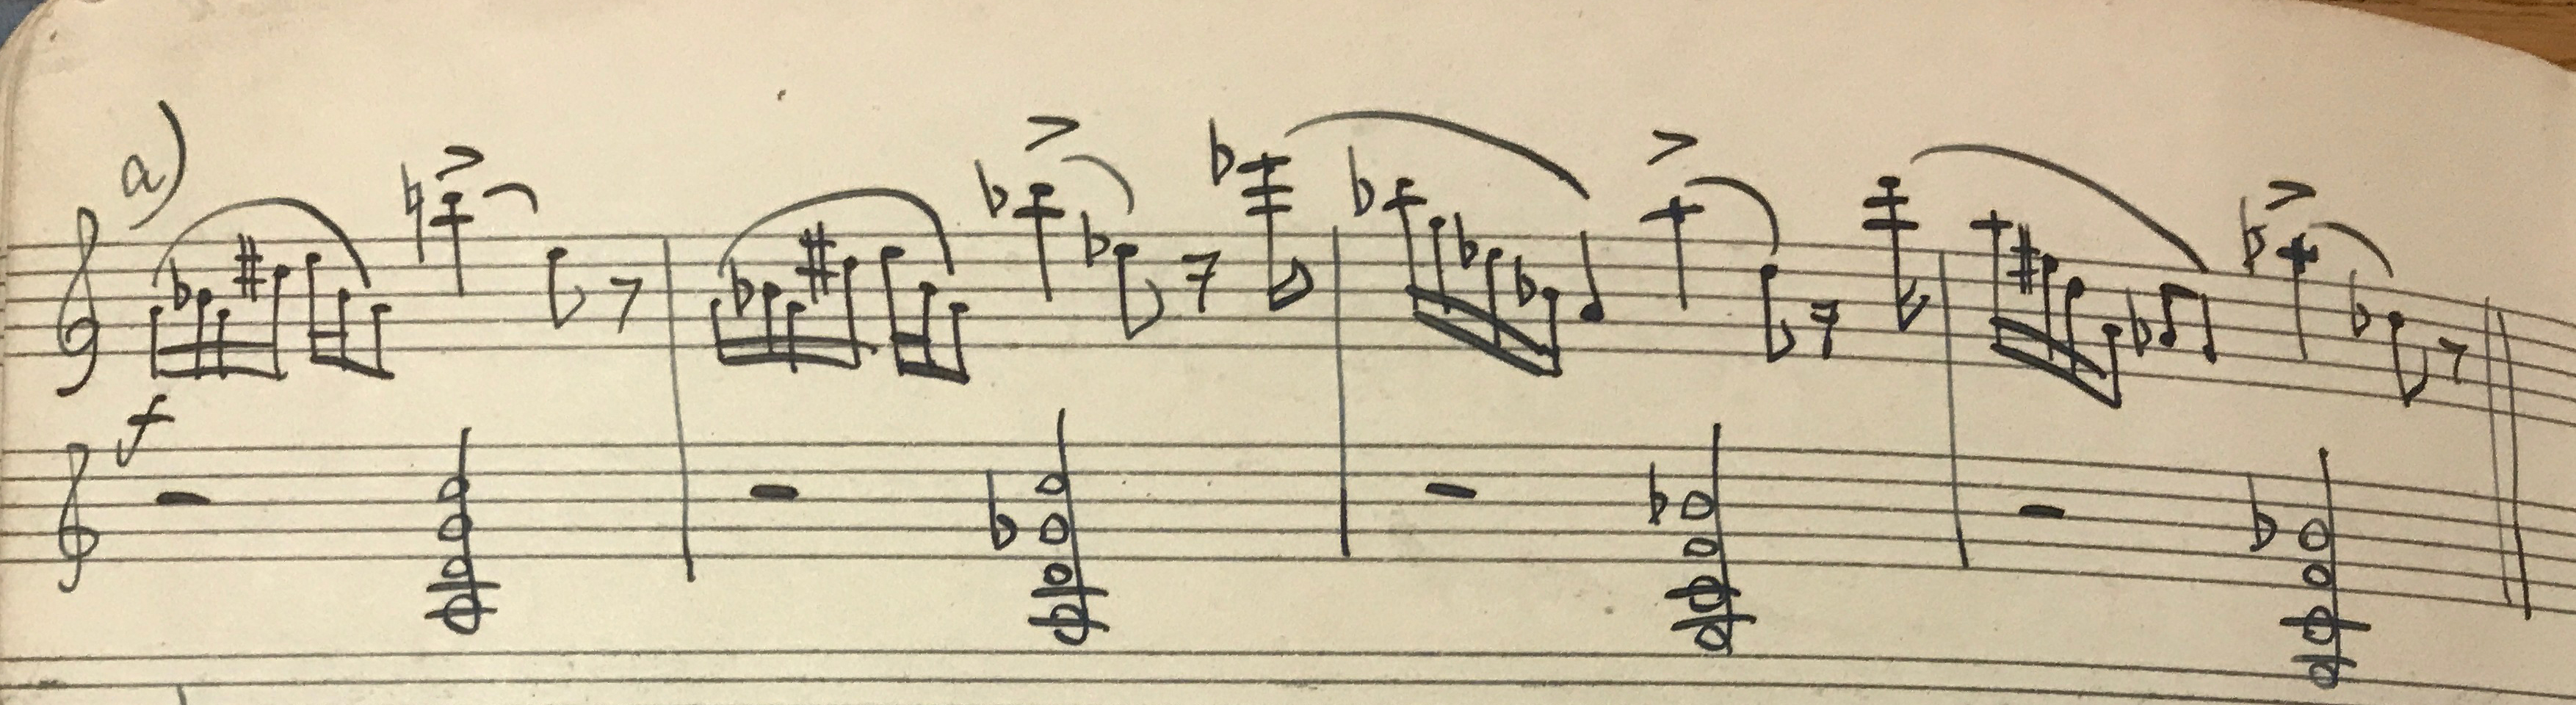 a)
f